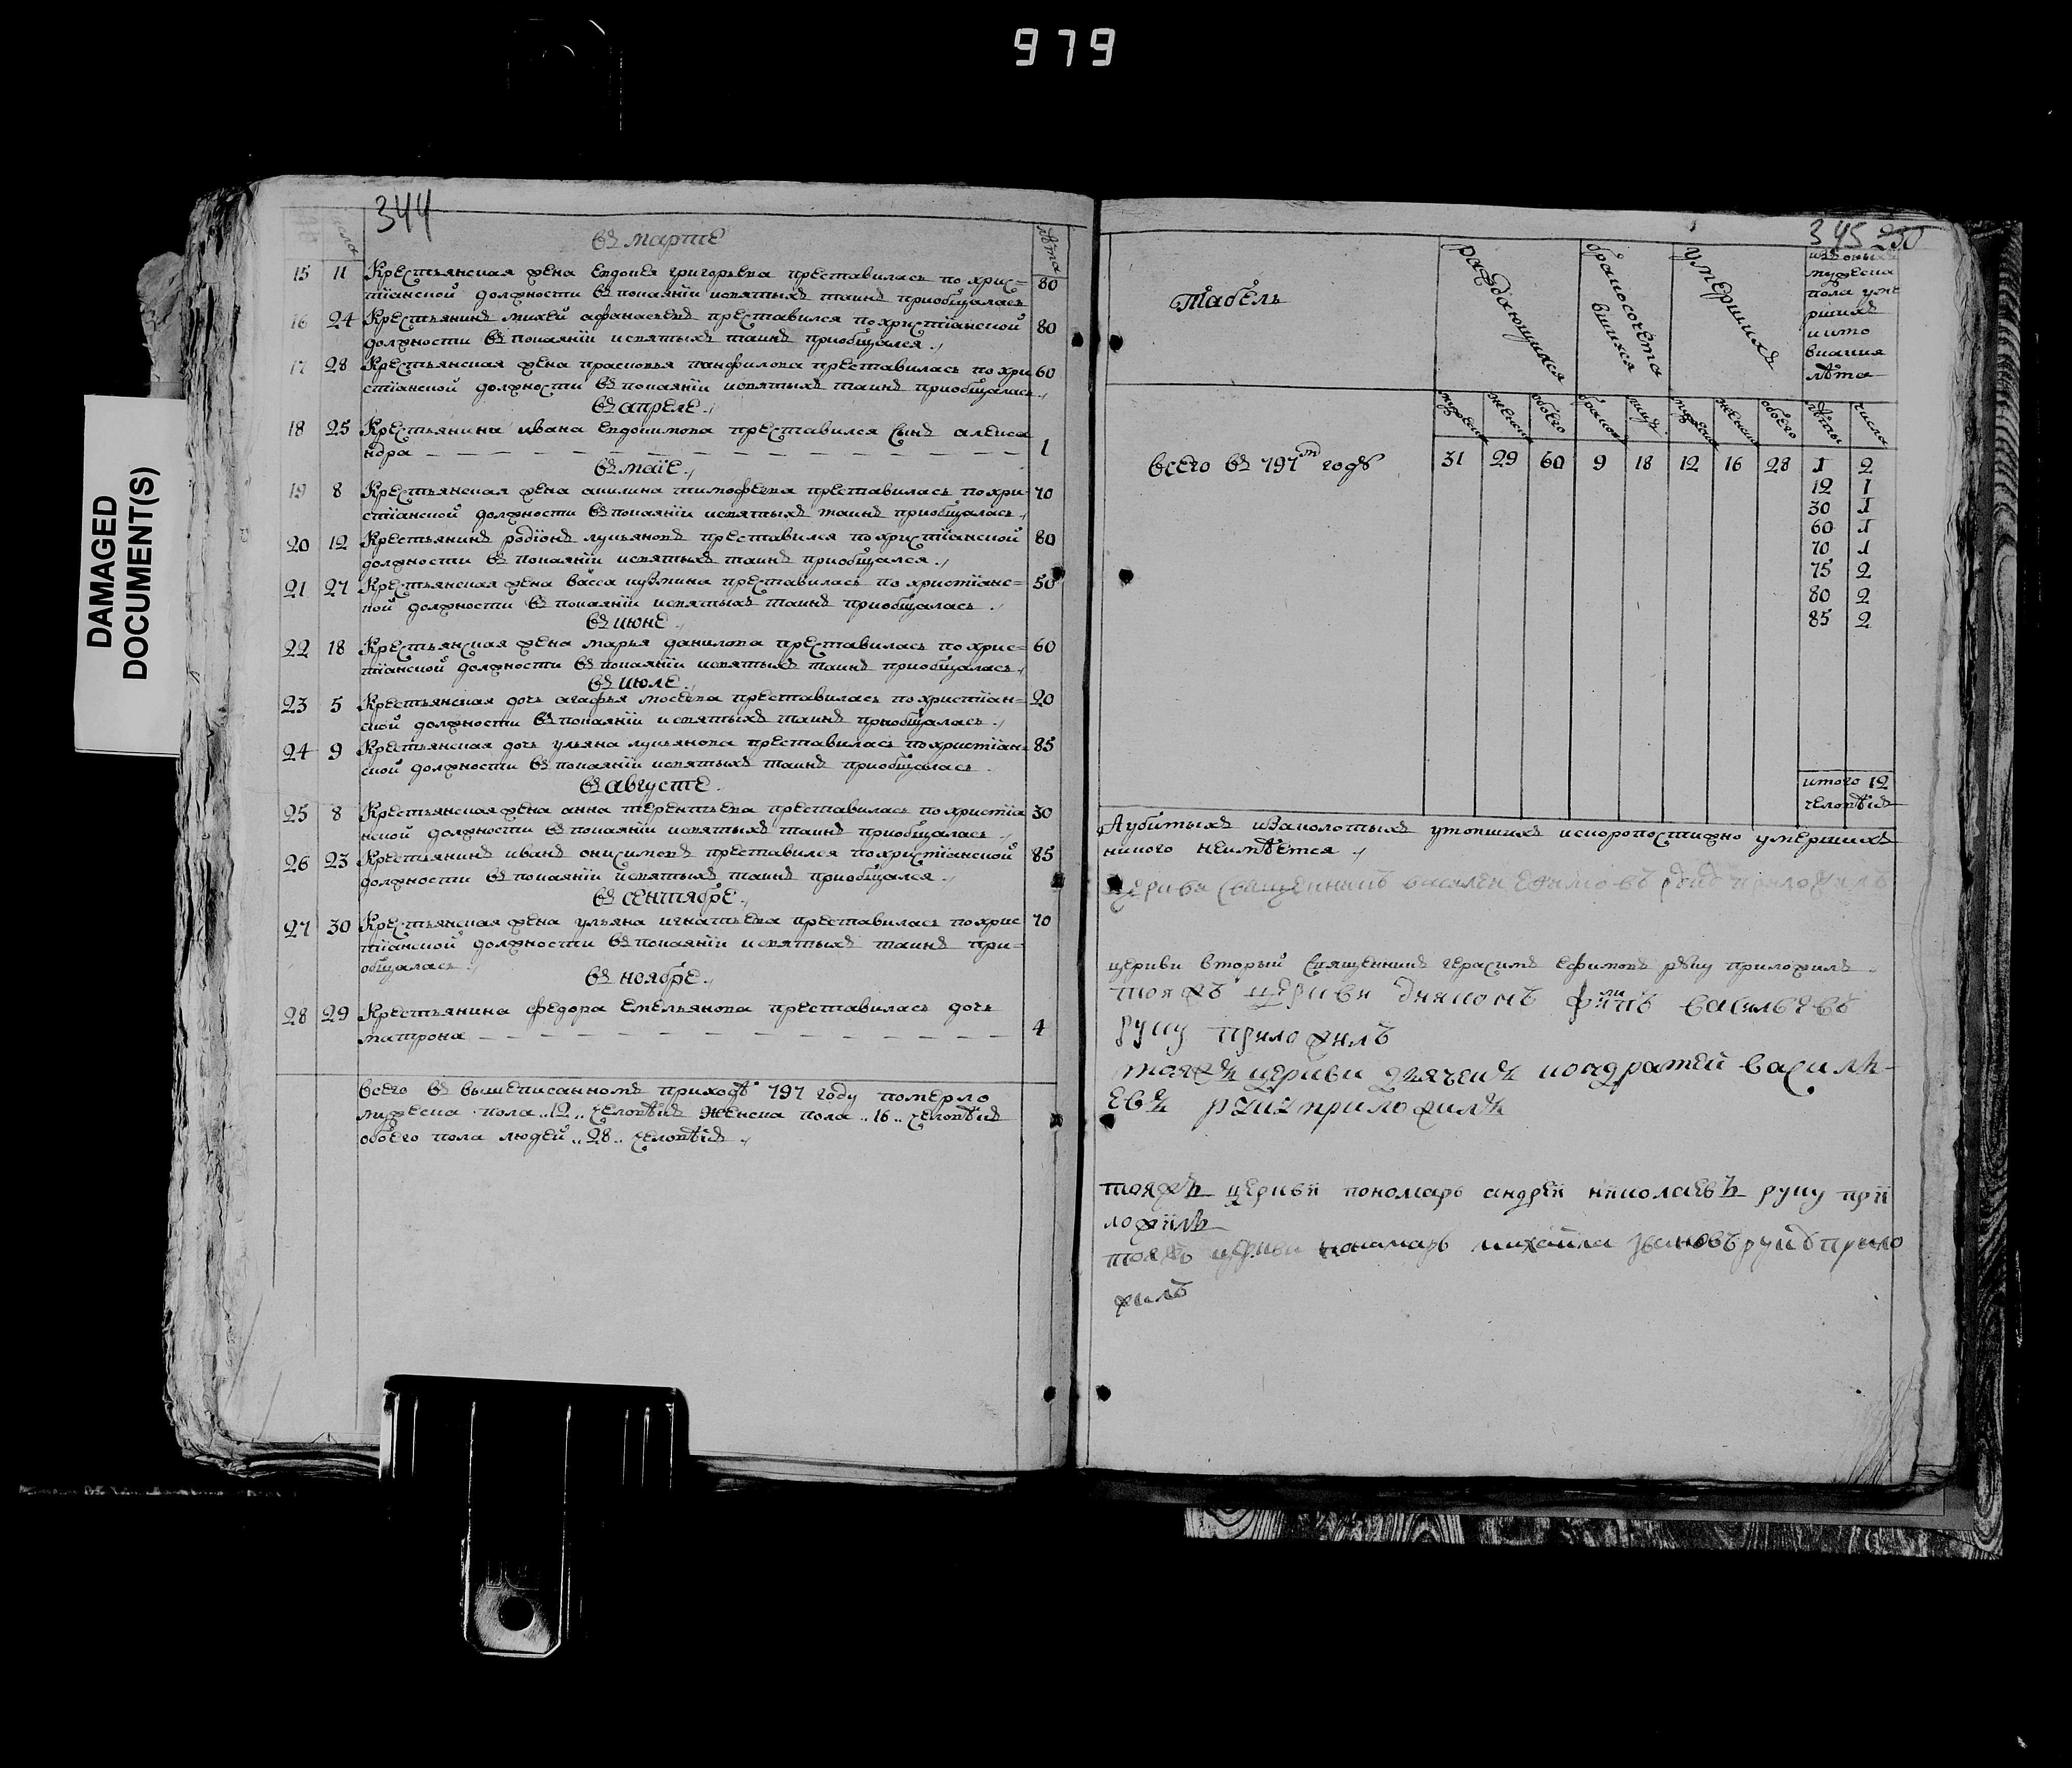 979
DAMAGED
DOCUMENT(S)
344
числа
лѣта
въ мартѣ
15 11 Крестьянская жена Евдокея григорьева преставилась по хрис=
тїанской должности въ покаянїи исвятыхъ таинъ приобщалась 80
16 24 Крестьянинъ михей афанасьевъ преставился похристїанской
должности въ покаянїи исвятыхъ таинъ приобщался ./ 80
17 28 Крестьянская жена прасковья панфилова преставилась по хри
стїанской должности въ покаянїи исвятыхъ таинъ приобщалась ./ 60
въ апреле ./
18 25 Крестьянина ивана Евдокимова преставился сынъ алекса
ндра 1
въ маїе ./
19 8 Крестьянская жена акилина тимофеева преставилась по хри
стїанской должности въ покаянїи исвятыхъ таинъ приобщалась ./ 70
20 12 Крестьянинъ родїонъ лукьяновъ преставился похристїанской
должности въ покаянїи исвятыхъ таинъ приобщался ./ 80
21 27 Крестьянская жена васса кузмина преставилась по христїанс=
кой должности въ покаянїи исвятыхъ таинъ приобщалась ./ 50
въ июне ./
22 18 Крестьянская жена марья данилова преставилась по хрис=
тїанской должности въ покаянїи исвятыхъ таинъ приобщалась ./ 60
въ июле ./
23 5 Крестьянская дочь агафья мосеева преставилась по христїан=
ской должности въ покаянїи исвятыхъ таинъ приобщалась ./ 20
24 9 Крестьянская дочь ульяна лукьянова преставилась похристїан=
ской должности въ покаянїи исвятыхъ таинъ приобщалась ./ 85
въ августе ./
25 8 Крестьянская жена анна терентьева преставилась по христїа
нской должности въ покаянїи исвятыхъ таинъ приобщалась ./ 30
26 23 Крестьянинъ иванъ онисимовъ преставился похристїанской
должности въ покаянїи исвятыхъ таинъ приобщался ./ 85
въ сентябре ./
27 30 Крестьянская жена ульяна игнатьева преставилась по хрис
тїанской должности въ покаянїи исвятыхъ таинъ при=
общалась ./ 70
въ ноябре ./
28 29 Крестьянина федора Емельянова преставилась дочь
матрона 4
всего въ вышеписанномъ приходѣ 797 году померло
мужеска пола ..12.. человѣкъ женска пола ..16.. человѣкъ
обоего пола людей ..28.. человѣкъ ./
345 250
табель
раждающихся
бракосочета
вшихся
умершихъ
мужеска
пола уме
ршихъ
икто
вкакия
лѣта
мужеск женск обоего браков лицъ мужеск женск обоего лѣты числа
всего въ 797м годѣ 31 29 60 9 18 12 16 28 1 2
12 1
30 1
60 1
70 1
75 2
80 2
85 2
итого 12
человѣкъ
Аубитыхъ изаколотыхъ утопшихъ искоропостижно умершихъ
никого неимѣется ./
церкви священникъ василеи ефимовъ рукѹ приложилъ
церкви вторый священникъ герасимъ ефимовъ рѹку приложилъ
тояжъ церкви диаконъ филипъ васильевъ
руку приложилъ
тояжъ церкви дьячекъ кондратей василь
евъ руку приложилъ
тояжъ церкви пономарь андреи николаевъ руку при
ложилъ
тояжъ церкви пономарь михаила ивановъ рукѹ прило
жилъ